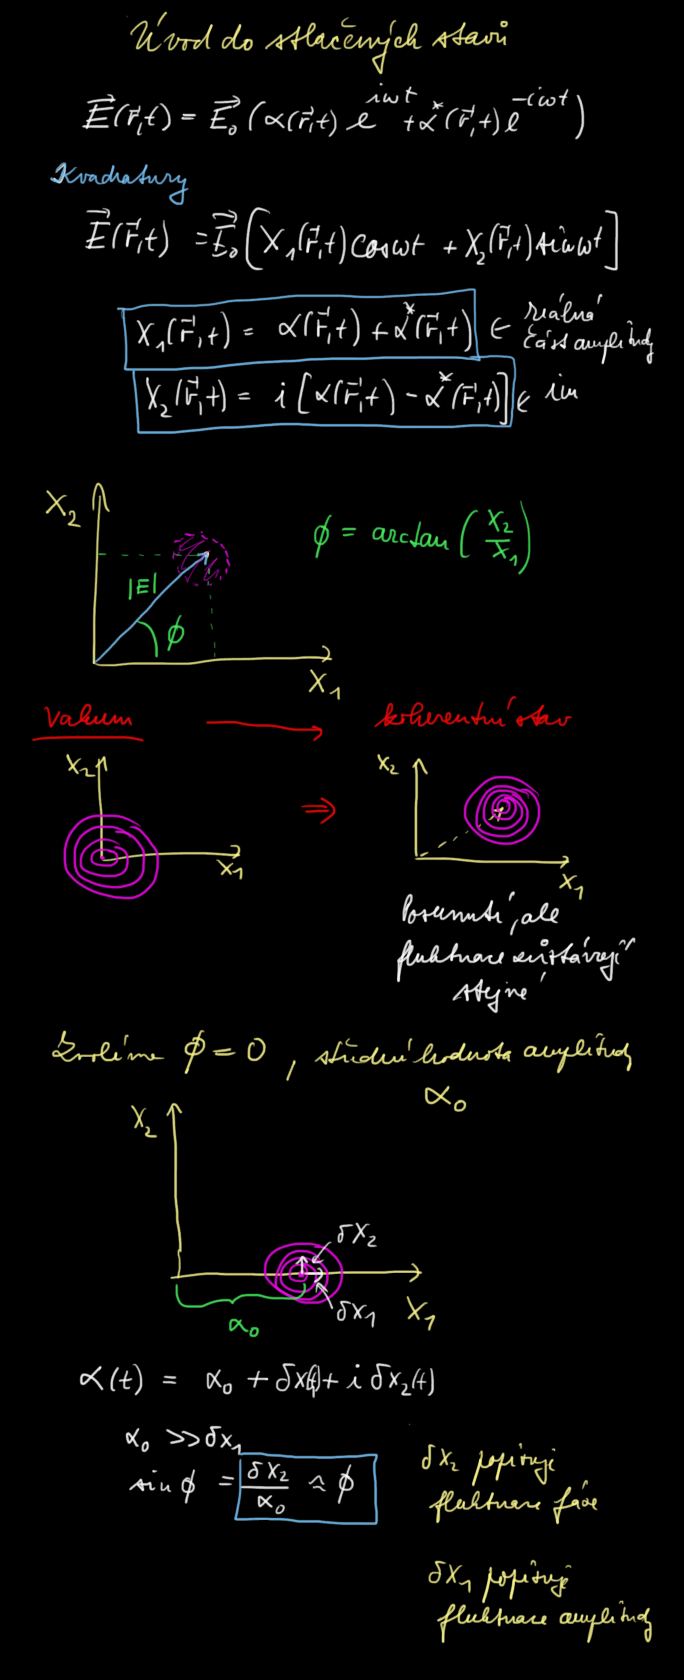 Úvod do stlačených stavů
E⃗(r⃗,t) = E⃗₀ (α(r⃗,t) e^{iωt} + α*(r⃗,t) e^{-iωt})
Kvadratury
E⃗(r⃗,t) = E⃗₀ [X₁(r⃗,t) cosωt + X₂(r⃗,t) sinωt]
X₁(r⃗,t) = α(r⃗,t) + α*(r⃗,t) ← reálná část amplitudy
X₂(r⃗,t) = i [α(r⃗,t) − α*(r⃗,t)] ← im
X₂
|E|
ϕ
X₁
ϕ = arctan (X₂/X₁)
Vakuum → koherentní stav
X₂
X₁
⇒
X₂
X₁
Posunutí, ale
fluktuace zůstávají
stejné
Zvolíme ϕ = 0, střední hodnota amplitudy
α₀
X₂
δX₂
δX₁
X₁
α₀
α(t) = α₀ + δX₁(t) + i δX₂(t)
α₀ >> δX₁
sin ϕ = δX₂/α₀ ≈ ϕ
δX₂ popisuje
fluktuace fáze
δX₁ popisuje
fluktuace amplitudy